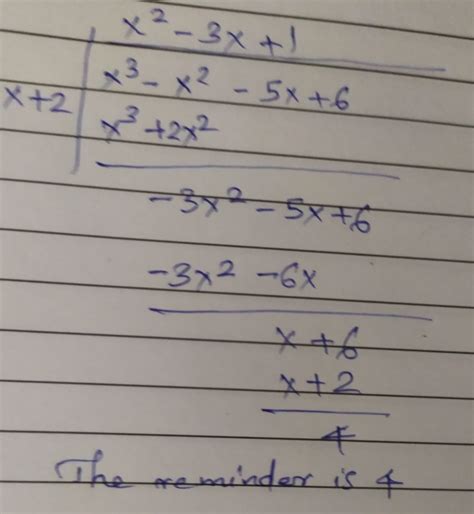 x² - 3x + 1
x+2 | x³ - x² - 5x + 6
x³ + 2x²
-3x² - 5x + 6
-3x² - 6x
x + 6
x + 2
4
The reminder is 4